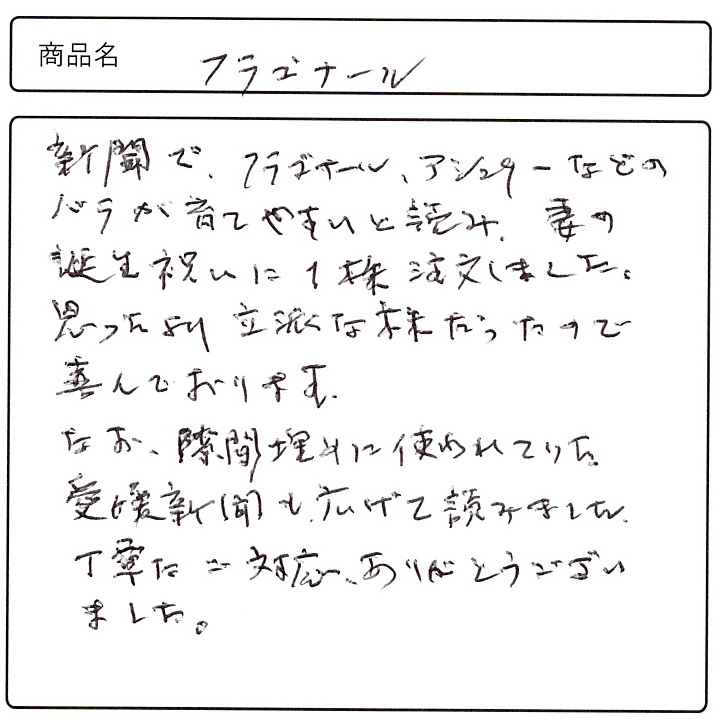 商品名 フラゴナール
新聞で、フラゴナール、アンジェラーなどの
バラが育てやすいと読み、妻の
誕生祝いに1株注文しました。
思ったより立派な株だったので
喜んでおります。
なお、隙間埋めに使われていた
愛媛新聞も広げて読みました。
丁寧なご対応、ありがとうござい
ました。